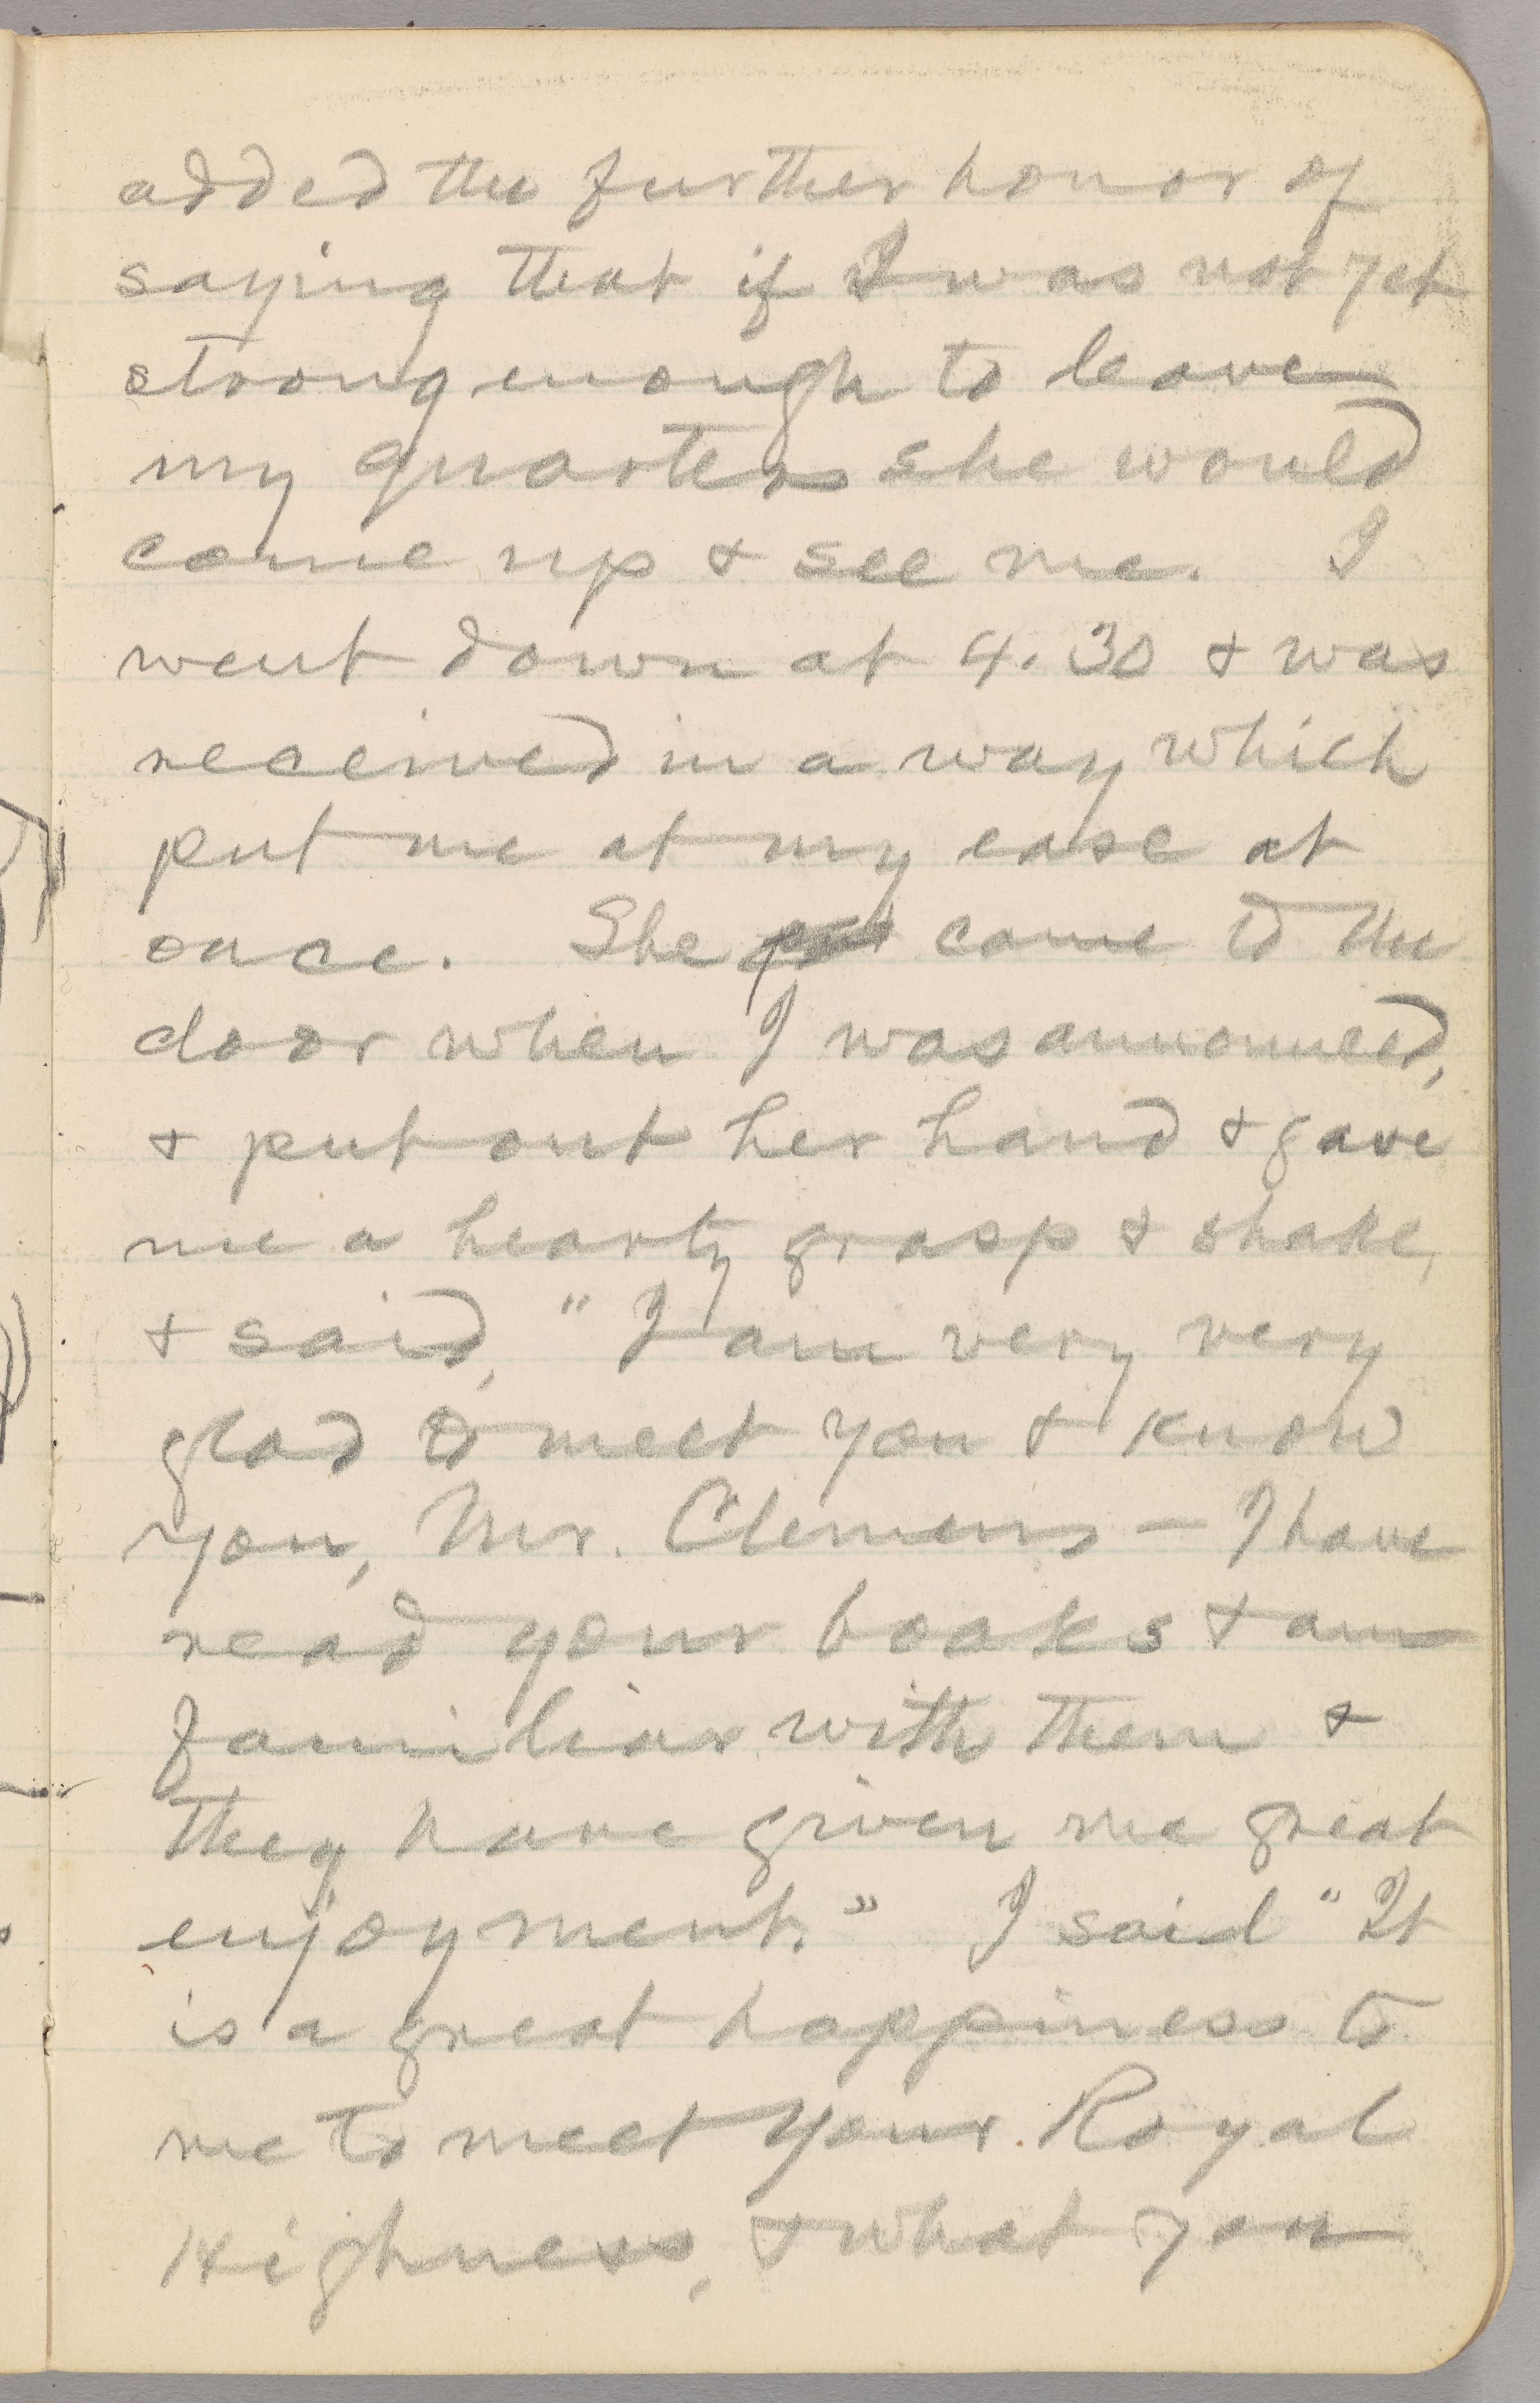 added the further honor of
saying that if I was not yet
strong enough to leave
my quarters she would
come up & see me. I
went down at 4.30 & was
received in a way which
put me at my ease at
once. She put came to the
door when I was announced,
& put out her hand & gave
me a hearty grasp & shake,
& said, "I am very very
glad to meet you & know
you, Mr. Clemens — I have
read your books & am
familiar with them &
they have given me great
enjoyment." I said "It
is a great happiness to
me to meet your Royal
Highness, & what you